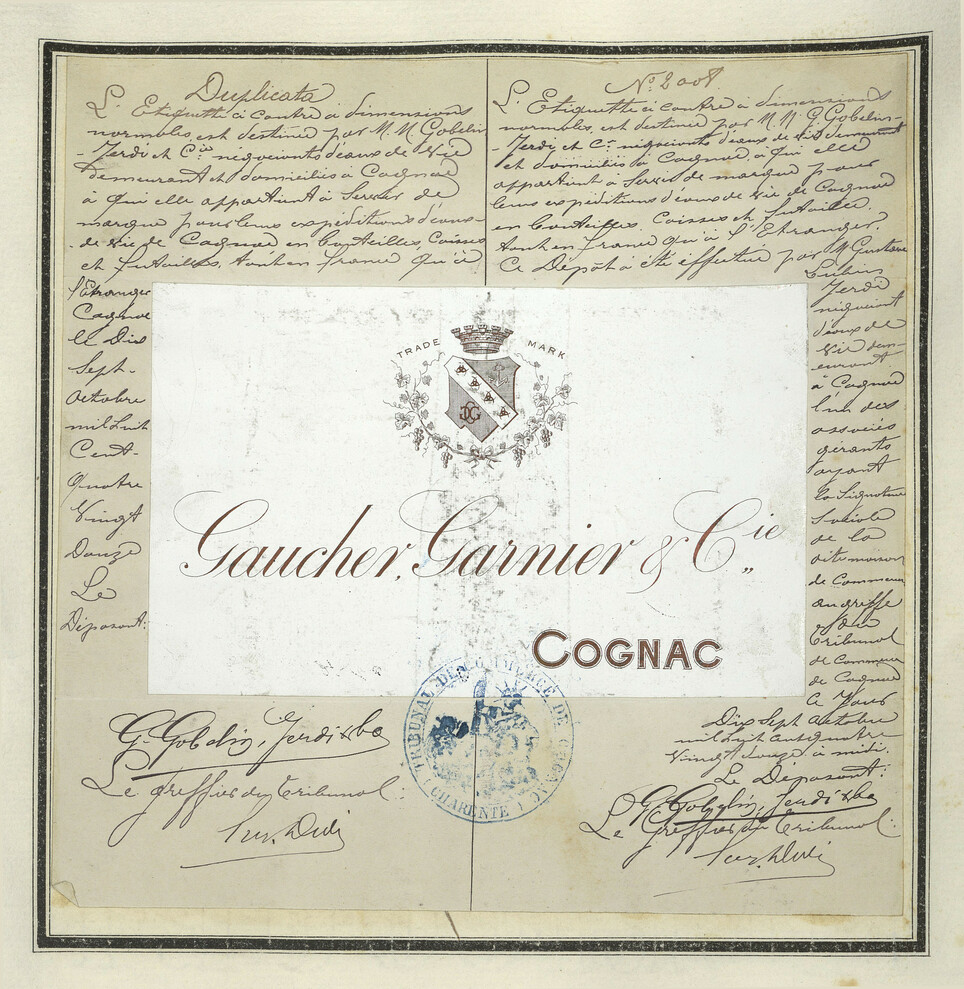 Duplicata
L'Etiquette ci contre à dimensions
normales, est destinée par M.M. G Gobelin
Jerdi et Cie négociants d'eaux de Vie
demeurant et domiciliés à Cognac
à qui elle appartient à Servir de
marque pour leurs expéditions d'eaux-
de vie de Cognac en Bouteilles, Caisses
et futailles, tant en france qu'à
l'Etranger
Cognac
le Dix
Sept-
Octobre
mil huit
Cent-
Quatre
Vingt
Douze
Le
Déposant:
G. Gobelin, Jerdi & Co
Le Greffier du Tribunal:
No 2008
L'Etiquette ci contre à dimensions
normales, est destinée par M.M. G Gobelin-
Jerdi et Cie négociants d'eaux de Vie demeurant
et domiciliés à Cognac, à qui elle
appartient à Servir de marque pour
leurs expéditions d'eaux de vie de Cognac
en Bouteilles, Caisses et futailles,
tant en france qu'à l'Etranger.
Ce Dépôt à été effectué par M Gustave
Jerdi
négociant
d'eaux de
Vie dem-
eurant
à Cognac
l'un des
associés
gérants
ayant
la Signature
Sociale
de la
dite maison
de Commerce
au greffe
du
Tribunal
de Commerce
de Cognac
ce Jour
Dix Sept Octobre
mil huit cent quatre
Vingt douze à midi.
Le Déposant:
G. Gobelin, Jerdi & Co
Le Greffier du Tribunal:
TRADE MARK
Gaucher, Garnier & Cie
COGNAC
TRIBUNAL DE COMMERCE DE COGNAC
CHARENTE